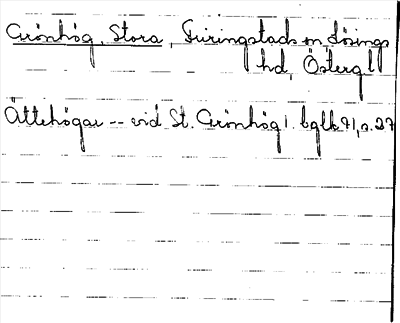 Grönhög, Stora, Furingstads sn Lösings
hd, Östergl
Ättehögar -- vid St. Grönhög l. bglb 71, s. 27